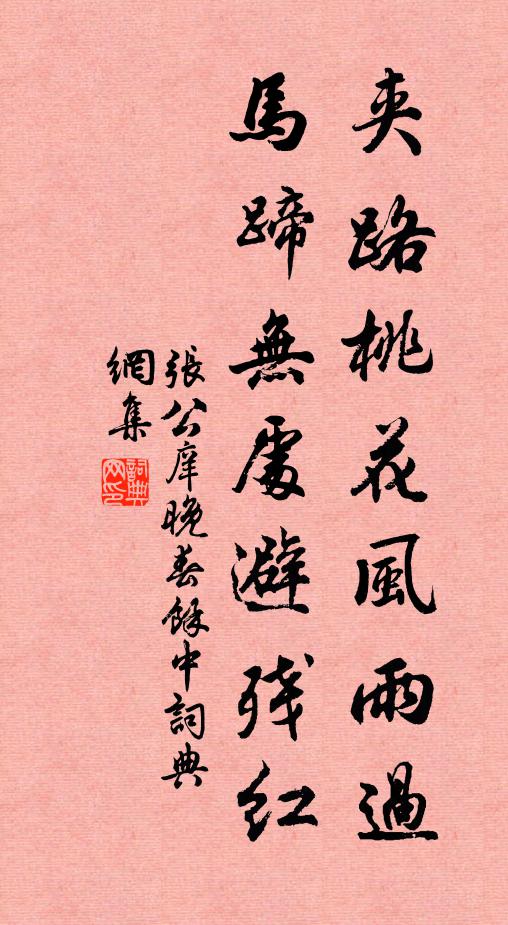 夹路桃花風雨過
馬蹄無處避残紅
張公庠晚春馀中詞典
網集
詞典網印